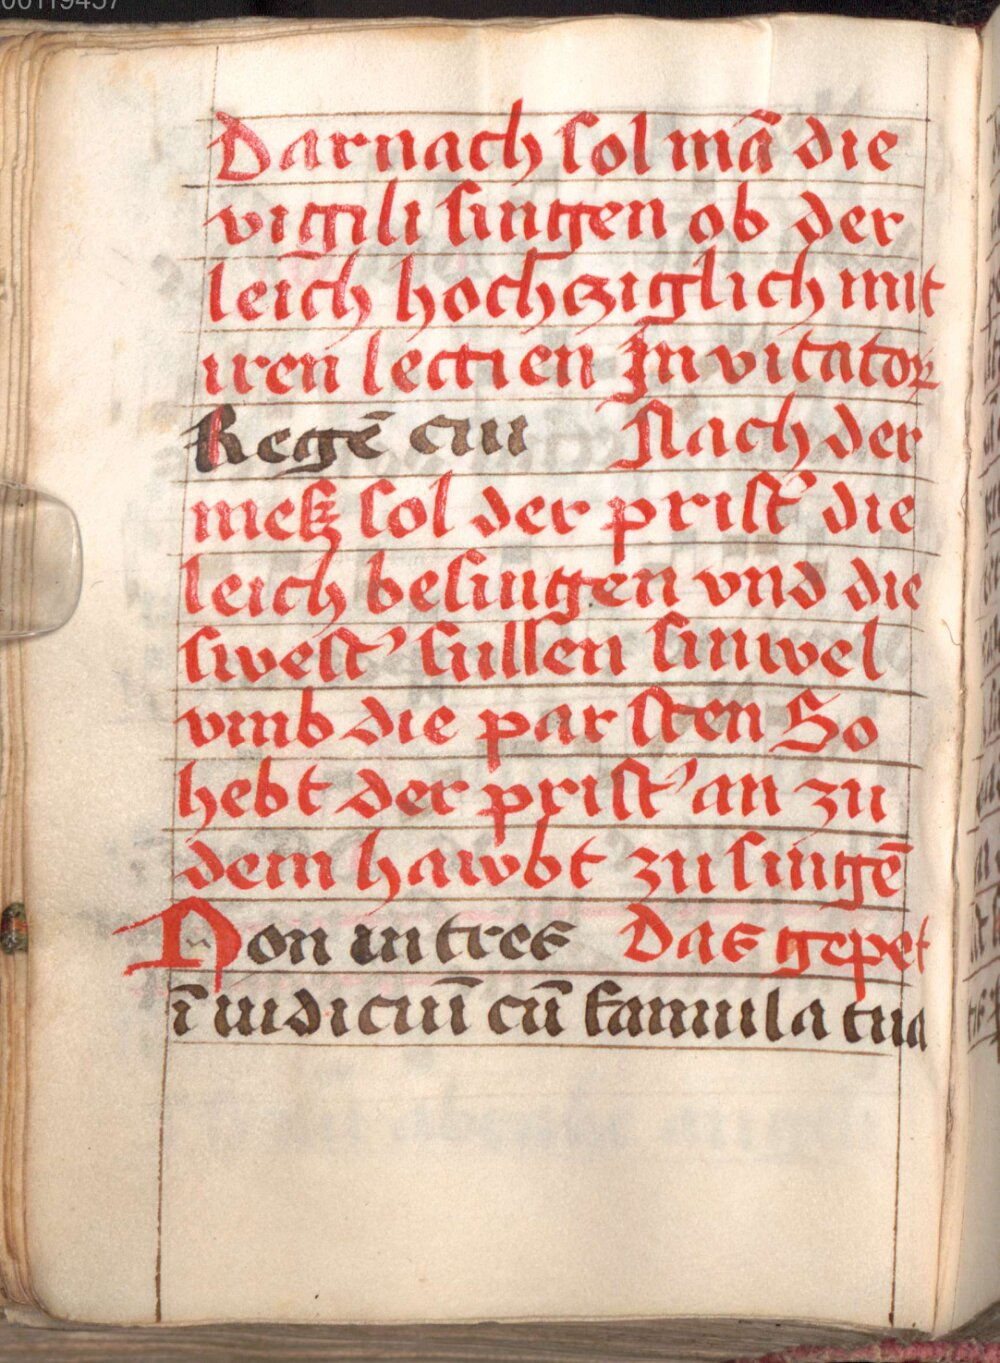 00119437
Darnach sol mā die
vigili singen ob der
leich hochcziglich mit
iren lectien Invitatoꝝ
Regē cui Nach der
meſz sol der prist' die
leich besingen vnd die
swest' sullen sinwel
vmb die par sten So
hebt der prist' an zu
dem hawbt zu singē
Non intres Das gepet
ī iudiciuī cū famula tua